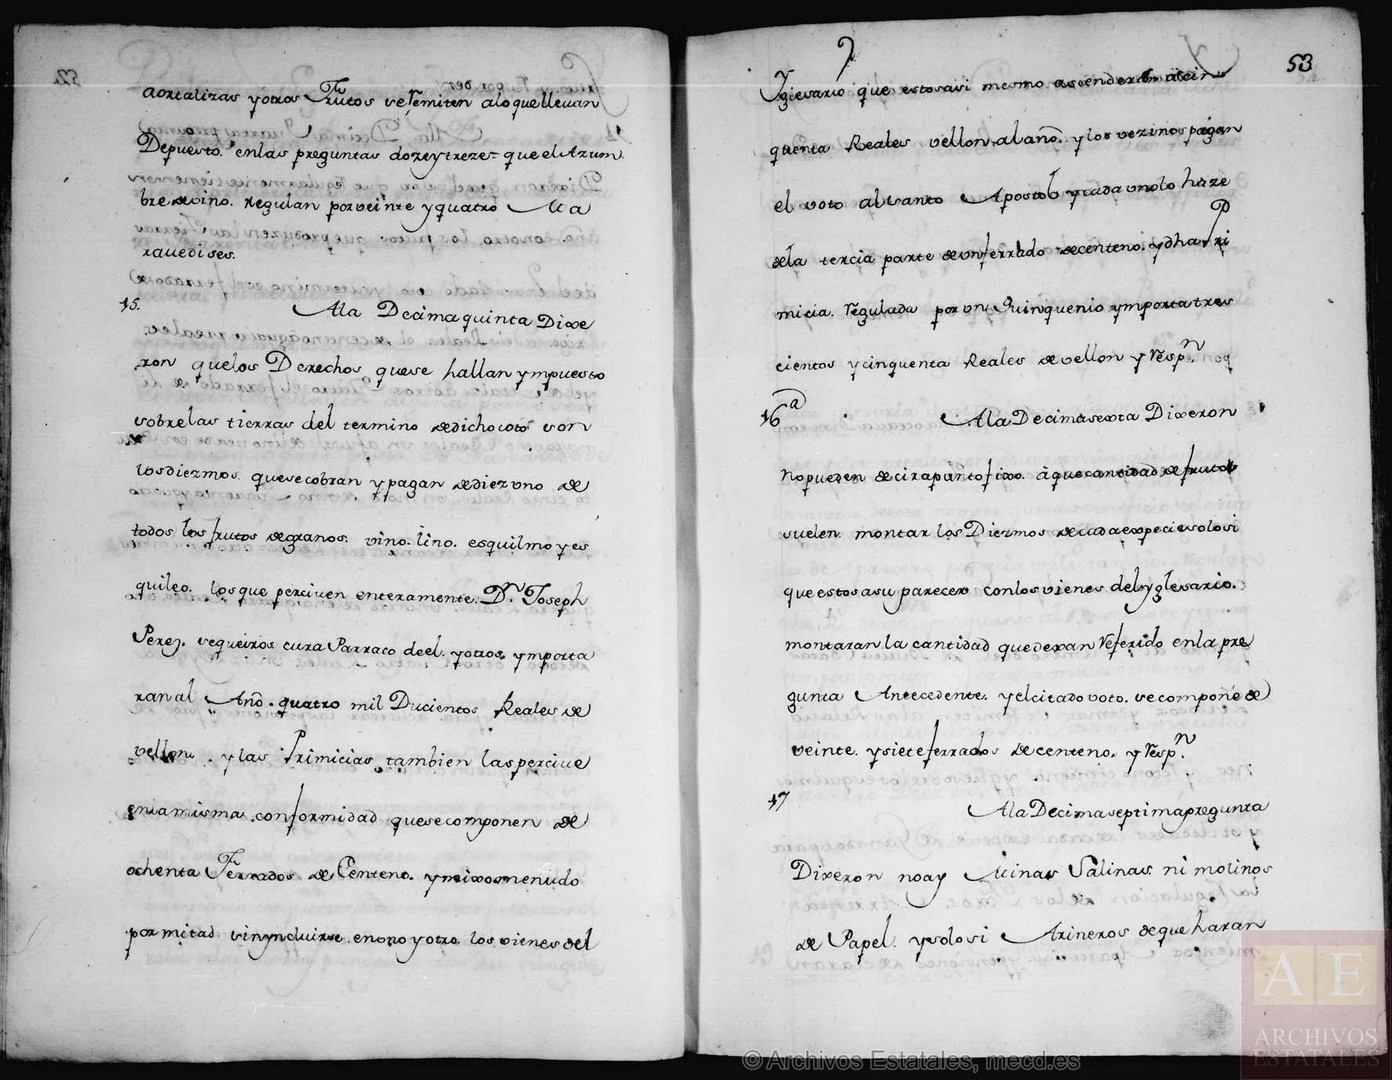 aortalizas yotros Frutos se Remiten alo que llevan
Depuesto. enlas preguntas dozeytreze= que el Azum
bre devino. regulan porveinte yquatro Ma
ravedises.
15. Ala Decima quinta Dixe
ron quelos Derechos quese hallan ympuesto
sobrelas tierras del termino dedichocoto son
losdiezmos. quesecobran ypagan dediezuno de
todos los frutos degranos. vino. lino. esquilmo yes
quileo. losque perciven enteramente. Dn. Joseph
Perez. sequeiros cura Parraco deel. yotros ymporta
ran al Año. quatro mil Ducientos Reales de
vellon. ylas Primicias tambien las percive
enlamisma conformidad quesecomponen de
ochenta Ferrados de Centeno. ymixomenudo
pormitad sinyncluirse. enuno yotro los vienes del
53
Yglesario que estosasi mesmo ascenderan acin
quenta Reales vellon. alaño. ylos vezinos pagan
el voto alsanto Apostol ycada unolo haze
dela tercia parte deunferrado decenteno. ydha Pri
micia. Regulada por un Quinquenio ymporta tres
cientos ycinquenta Reales de vellon y Respn.
16a Ala Decimasexta Dixeron
nopueden decirapuntofixo. aquecantidad de frutos
suelen. montar los Diezmos decadaexpecie solosi
que estos asu parecer conlosvienes delyglesario.
montaran la cantidad quedexan Referido enla pre
gunta Antecedente. yelcitadovoto. secompone de
veinte. ysieteferrados decenteno. y Respn.
17 Ala Decimaseptimapregunta
Dixeron noay Minas Salinas ni molinos
de Papel. ysolosi Arineros deque haran
AE
ARCHIVOS
ESTATALES
© Archivos Estatales, mecd.es